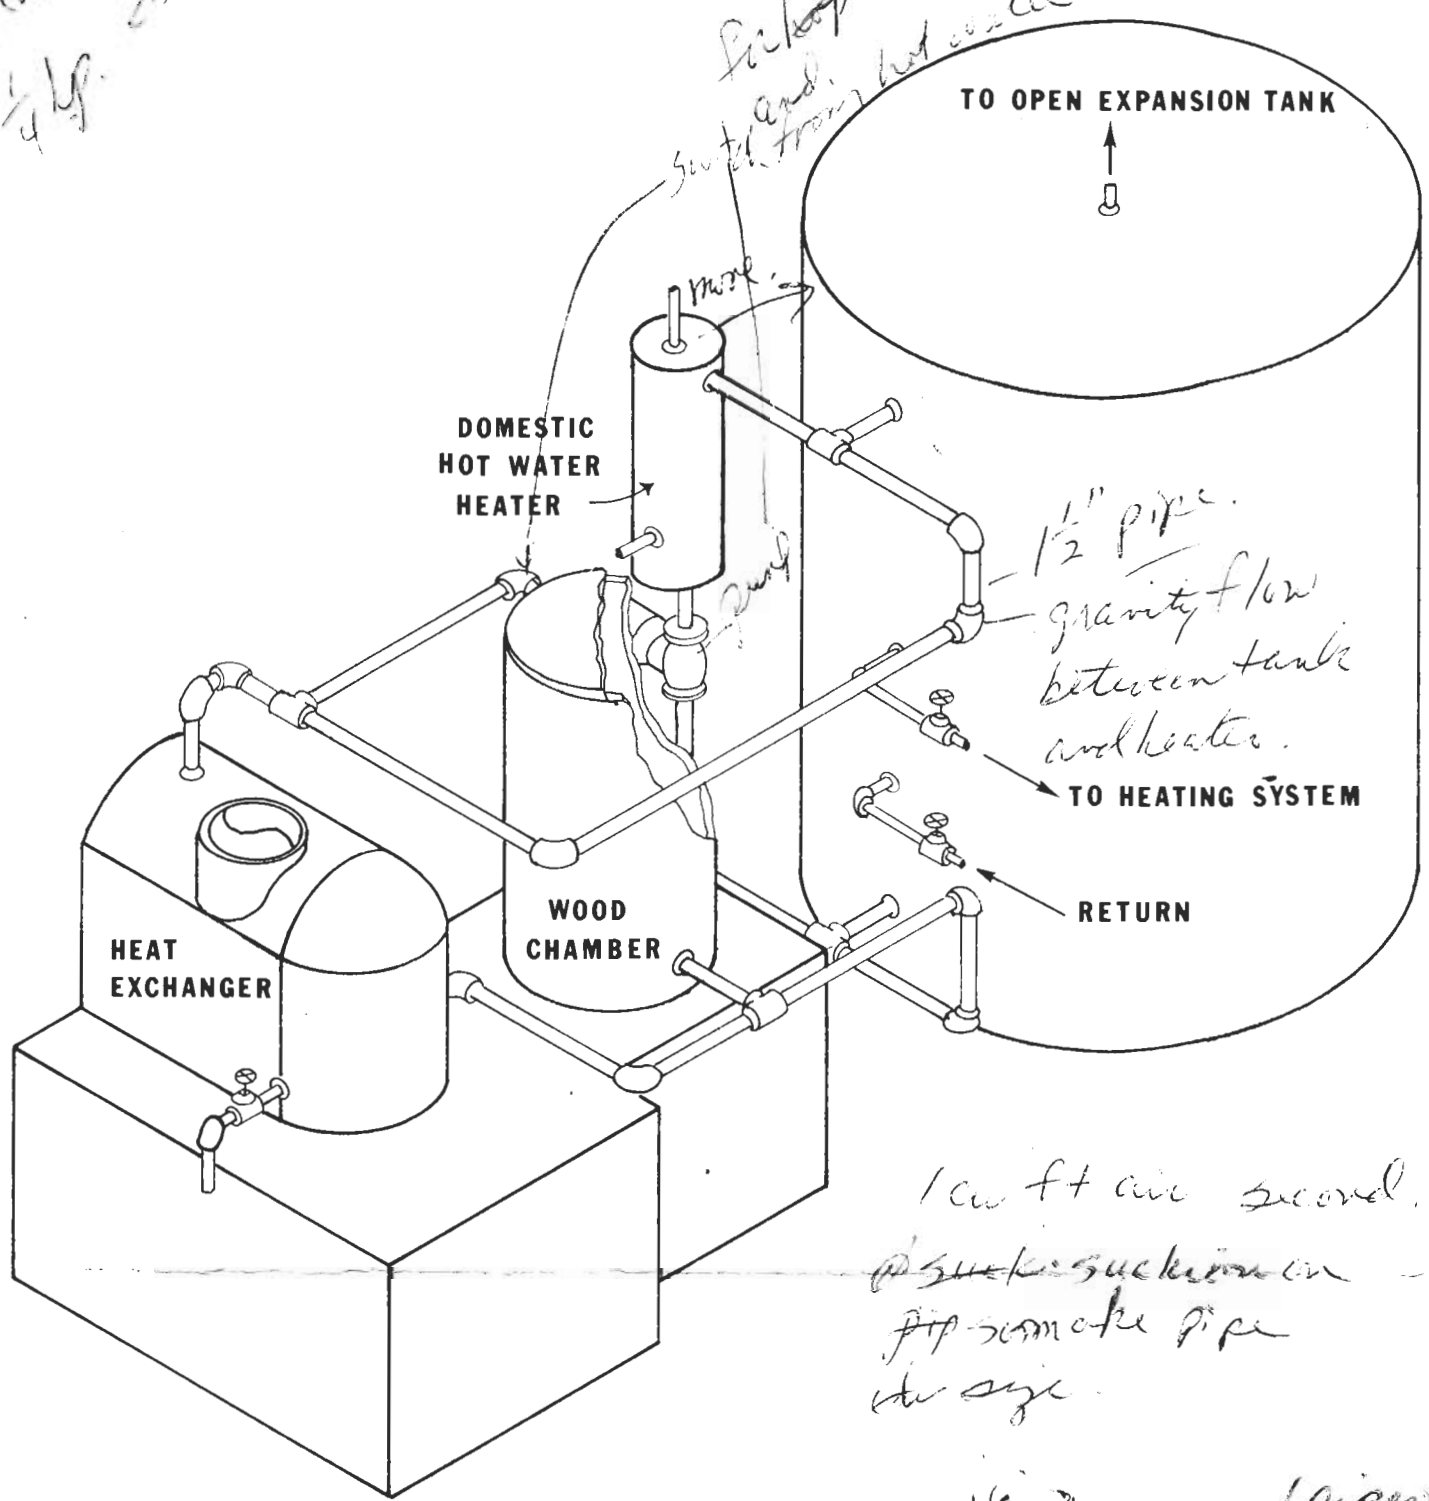 1/4 hp.
and
from hot
TO OPEN EXPANSION TANK
more.
DOMESTIC
HOT WATER
HEATER
1 1/2" pipe.
gravity flow
between tank
and heater.
TO HEATING SYSTEM
RETURN
WOOD
CHAMBER
HEAT
EXCHANGER
1 cu ft air second.
suckion on
smoke pipe
size.